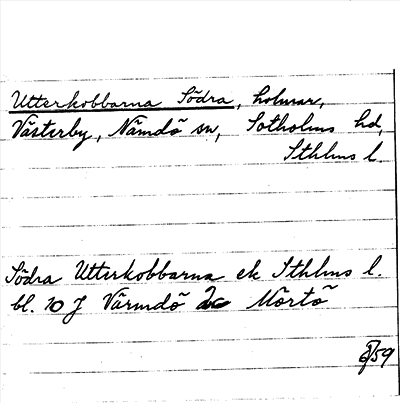 Utterkobbarna Södra, holmar,
Västerby, Nämdö sn, Sotholms hd,
Sthlms l.
Södra Utterkobbarna ek Sthlms l.
bl. 10 J Värmdö 2c Mörtö
59